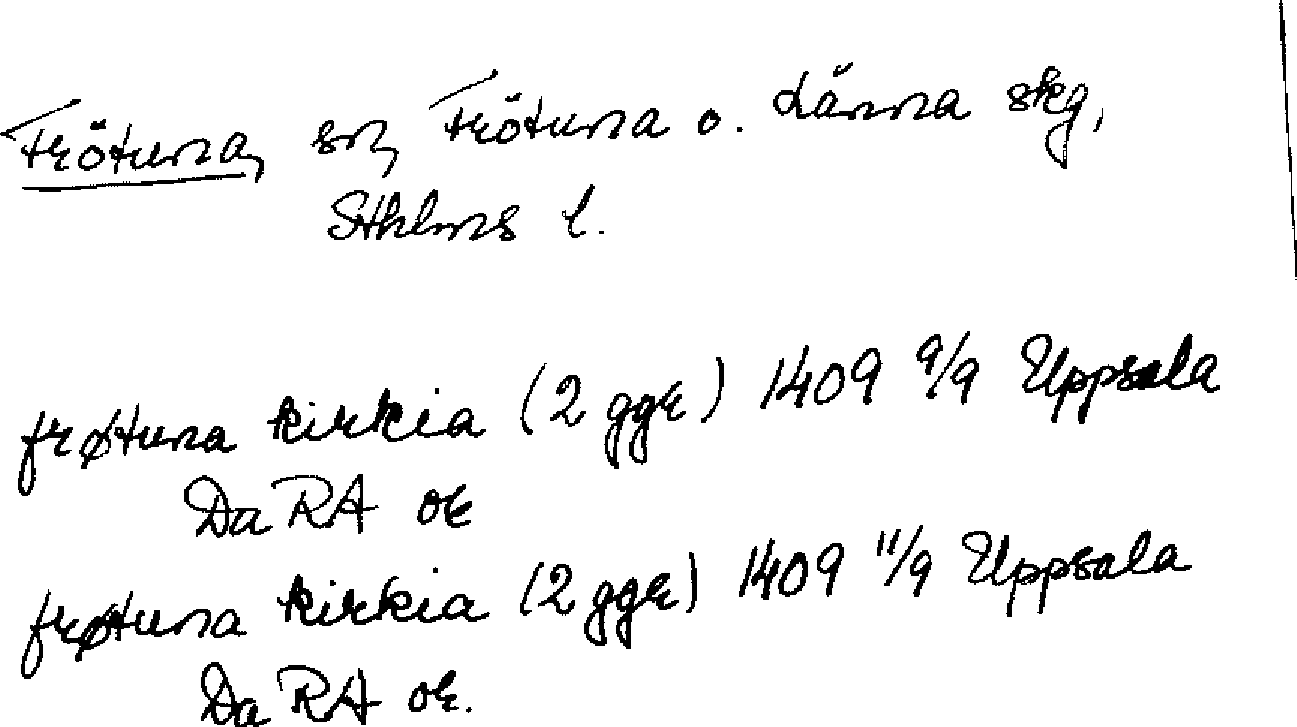 Frötuna, sn, Frötuna o. Länna skg,
Sthlms l.
frøtuna kirkia (2 ggr) 1409 9/9 Uppsala
Da RA or
frøtuna kirkia (2 ggr) 1409 11/9 Uppsala
Da RA or.